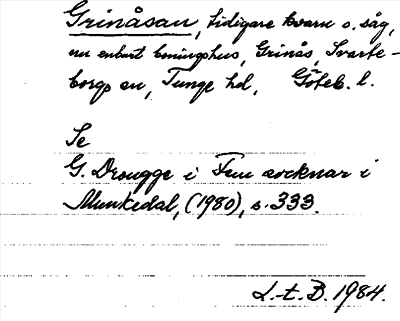 Grinåsan, tidigare kvarn o. såg,
nu enbart boningshus, Grinås, Svarte-
borgs sn, Tunge hd, Göteb. l.
Se
G. Drougge i Fem socknar i
Munkedal, (1980), s. 333.
L.-t. B. 1984.